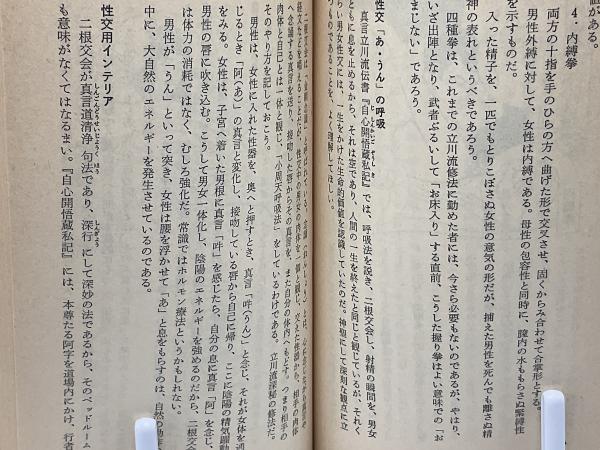 証がある。
4・内縛拳
両方の十指を手のひらの方へ曲げた形で交叉させ、固くからみ合わせて合掌形とする。
男性外縛に対して、女性は内縛である。母性の包容性と同時に、膣内の水ももらさぬ緊縛性
を示すものだ。
入った精子を、一匹でもとりこぼさぬ女性の意気の形だが、捕えた男性を死んでも離さぬ精
神の表れというべきであろう。
四種拳は、これまでの立川流修法に勤めた者には、今さら必要もないのであるが、やはり、
いざ出陣となり、武者ぶるいして「お床入り」する直前、こうした握り拳はよい意味での「お
まじない」であろう。
性交「あ・うん」の呼吸
真言立川流伝書『自心開悟蔵私記』では、呼吸法を説き、二根交会し、射精の瞬間を、男女
ともに息を止めるから、それは空であり、人間の一生を終えたと同じと観じているが、それく
らい男女性交叉には、一生をかけた生命的価値を認識していたのだ。神聖にして深刻な観点に立
つものであることを、よく理解してほしい。
念誦する真言を送り、接吻した唇からその真言を、また自分の体内へもどす。つまり相手の
肉体と自己とは一体と観じ、「小周天呼吸法」をしているわけである。立川流深秘の修法だ。
そのやり方を記しておこう。
男性は、女性に入れた性器を、奥へと押すとき、真言「吽(うん)」と念じ、それが女体を通
じるとき「阿(あ)」の真言と変化し、接吻している唇から自己に帰り、ここに陰陽の精気躍動
をみる。女性は、子宮へ着いた男根に真言「吽」を感じたら、自分の息に真言「阿」を念じ、
男性の唇に吹き込む。こうして男女一体化し、陰陽のエネルギーを強めるのだから、二根交会
は体力の消耗ではなく、むしろ強化だ。常識ではホルモン療法というかもしれない。
男性が「うん」といって突き、女性は腰を浮かせて「あ」と息をもらすのは、自然の
中に、大自然のエネルギーを発生させているのである。
性交用インテリア
二根交会が真言道清浄句法であり、深行にして深妙の法であるから、そのベッドルーム
も意味がなくてはなるまい。『自心開悟蔵私記』には、本尊たる阿字を道場内にかけ、行者